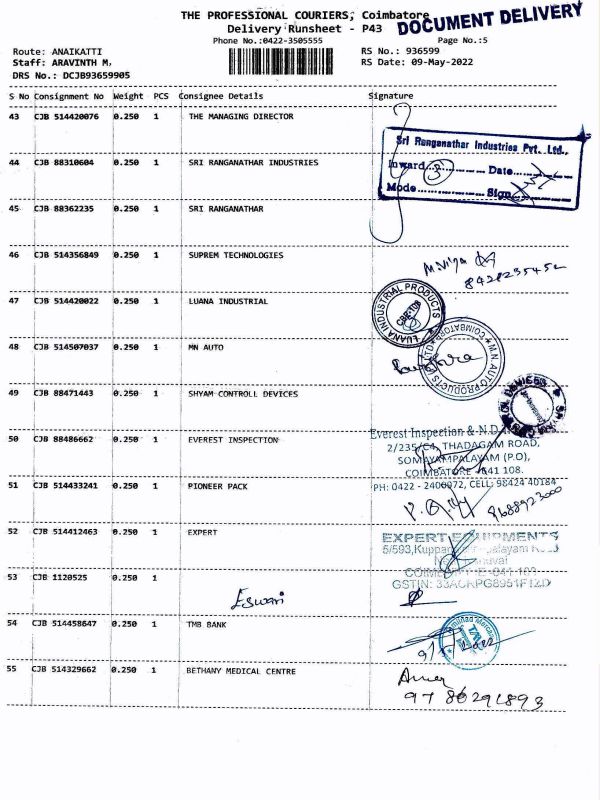 THE PROFESSIONAL COURIERS, Coimbatore
DOCUMENT DELIVERY
Delivery Runsheet - P43
Phone No.:0422-3505555
Page No.:5
Route: ANAIKATTI
RS No.: 936599
Staff: ARAVINTH M,
RS Date: 09-May-2022
DRS No.: DCJB93659905
S No Consignment No Weight PCS Consignee Details Signature
43 CJB 514420076 0.250 1 THE MANAGING DIRECTOR
Sri Ranganathar Industries Pvt. Ltd.,
Inward 3 Date
44 CJB 88310604 0.250 1 SRI RANGANATHAR INDUSTRIES
Mode Sign
45 CJB 88362235 0.250 1 SRI RANGANATHAR
46 CJB 514356849 0.250 1 SUPREM TECHNOLOGIES
47 CJB 514420022 0.250 1 LUANA INDUSTRIAL
LUANA INDUSTRIAL PRODUCTS
48 CJB 514507037 0.250 1 MN AUTO
M.N.AUTO PRODUCTS (P) LTD
COIMBATORE
49 CJB 88471443 0.250 1 SHYAM CONTROLL DEVICES
50 CJB 88486662 0.250 1 EVEREST INSPECTION
Everest Inspection & N.D.
2/235/C4, THADAGAM ROAD,
SOMAYAMPALAYAM (P.O),
COIMBATORE - 641 108.
PH: 0422 - 2400972, CELL: 98424 40184
51 CJB 514433241 0.250 1 PIONEER PACK
9688923000
52 CJB 514412463 0.250 1 EXPERT
EXPERT EQUIPMENTS
53 CJB 1120525 0.250 1
Eswari
54 CJB 514458647 0.250 1 TMB BANK
55 CJB 514329662 0.250 1 BETHANY MEDICAL CENTRE